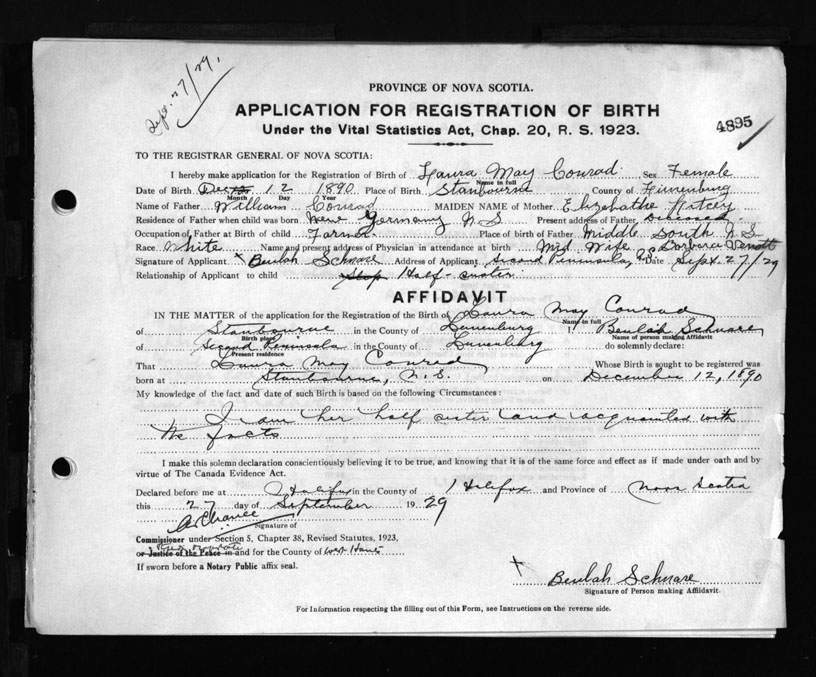 Sept. 27/29.
PROVINCE OF NOVA SCOTIA.
APPLICATION FOR REGISTRATION OF BIRTH
Under the Vital Statistics Act, Chap. 20, R. S. 1923.
4895
TO THE REGISTRAR GENERAL OF NOVA SCOTIA:
I hereby make application for the Registration of Birth of Laura May Conrad. Sex Female
Name in full
Date of Birth Dec 12 1890 Place of Birth Stanbourne County of Lunenburg
Month Day Year
Name of Father William Conrad MAIDEN NAME of Mother Elizabathe
Residence of Father when child was born New Germany N S Present address of Father Diseased
Occupation of Father at Birth of child Farmer Place of birth of Father Middle South N.S.
Race White Name and present address of Physician in attendance at birth Mid Wife Barbara
Signature of Applicant x Beulah Schnare Address of Applicant Second Peninsula, Date Sept. 27/29
Relationship of Applicant to child Step Half-sister.
AFFIDAVIT
IN THE MATTER of the application for the Registration of the Birth of Laura May Conrad
Name in full
of Stanbourne in the County of Lunenburg I, Beulah Schnare
Birth place Name of person making Affidavit
of Second Peninsula in the County of Lunenburg do solemnly declare:
Present residence
That Laura May Conrad Whose Birth is sought to be registered was
born at Stanbourne, N.S. on December 12, 1890
My knowledge of the fact and date of such Birth is based on the following Circumstances:
I am her half sister and acquanted with
the facts
I make this solemn declaration conscientiously believing it to be true, and knowing that it is of the same force and effect as if made under oath and by
virtue of The Canada Evidence Act.
Declared before me at Halifax in the County of Halifax and Province of Nova Scotia
this 27 day of September 1929
Signature of
Commissioner under Section 5, Chapter 38, Revised Statutes, 1923,
or Justice of the Peace in and for the County of West Hants
If sworn before a Notary Public affix seal.
x Beulah Schnare
Signature of Person making Affidavit.
For Information respecting the filling out of this Form, see Instructions on the reverse side.